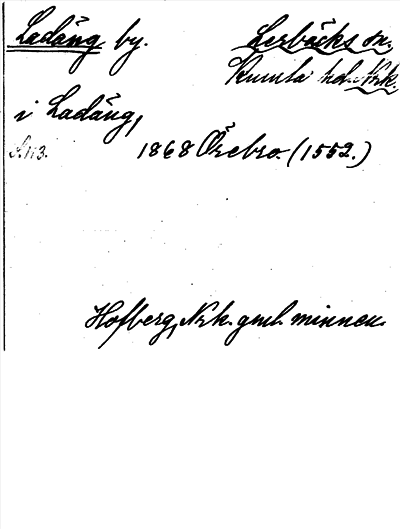 Ladäng by. Lerbäcks sn.
Kumla hd. Nrk.
i Ladäng,
s. 113. 1868 Örebro. (1552.)
Hofberg, Nrk. gml. minnen.